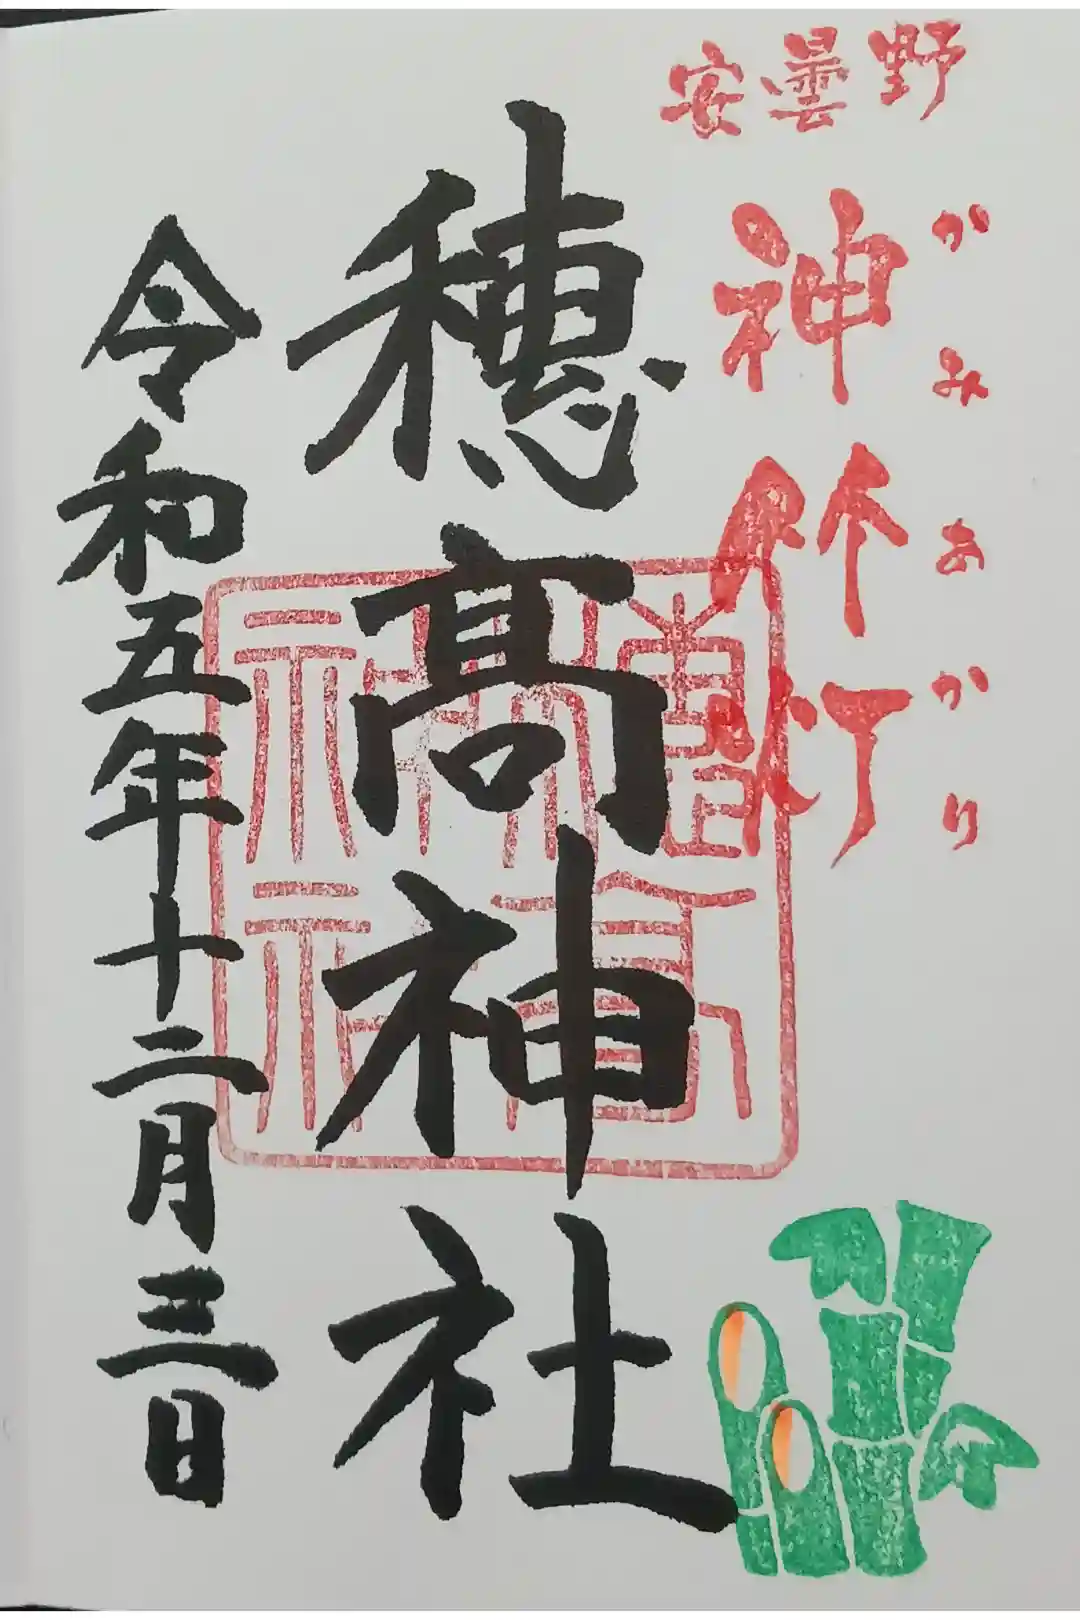 安曇野
神竹灯
かみあかり
穂高神社
穂高神社
令和五年十二月三日